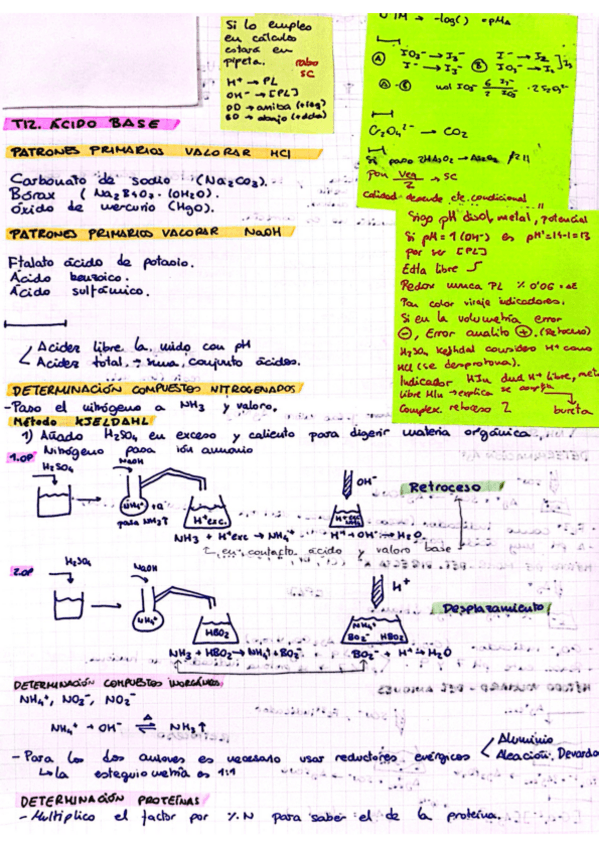 Si lo empleo
en cálculos
estará en
pipeta.
rabo
SC
H⁺ → PL
OH⁻ → [PL]
→ -log( ) =pMₐ
Ⓐ IO₃⁻ → I₃⁻
I⁻ → I₃⁻
Ⓑ
C₂O₄²⁻ → CO₂
Si paso
por Veq/2 → SC
Calidad depende cte. condicional
T12. ÁCIDO BASE
PATRONES PRIMARIOS VALORAR HCl
Carbonato de sodio (Na₂CO₃).
Bórax
Óxido de mercurio (HgO).
PATRONES PRIMARIOS VALORAR NaOH
Ftalato ácido de potasio.
Ácido benzoico.
Ácido sulfámico.
Sigo pH disol, metal, potencial
Si pH = 1 (OH⁻) es pH = 14-1 = 13
por ser [PL]
Edta libre
Redox nunca PL
Pon color viraje indicadores.
Si en la volumetría error
⊖, Error analito ⊕. (Retroceso)
H₂SO₄ Kejhdal considero H⁺ como
HCl (se desprotona).
Indicador HIn dud H⁺ libre, met
libre HIn → explica se
Complex. retroceso 2
bureta
Acidez libre la mido con pH
Acidez total → suma, conjunto ácidos.
DETERMINACIÓN COMPUESTOS NITROGENADOS
- Paso el nitrógeno a NH₃ y valoro.
Método KJELDAHL
1) Añado H₂SO₄ en exceso y caliento para digerir materia orgánica.
Nitrógeno pasa ión amonio
1.OP
H₂SO₄
NaOH
NH₄⁺
para NH₃↑
H⁺exc.
OH⁻
Retroceso
NH₃ + H⁺exc → NH₄⁺
H⁺ + OH⁻ → H₂O
en contacto ácido y valoro base
2.OP
H₂SO₄
NaOH
NH₄⁺
HBO₂
H⁺
NH₄⁺
BO₂⁻ HBO₂
Desplazamiento
NH₃ + HBO₂ → NH₄⁺ + BO₂⁻
BO₂⁻ + H⁺ → H₂O
DETERMINACIÓN COMPUESTOS INORGÁNICOS
NH₄⁺, NO₃⁻, NO₂⁻
NH₄⁺ + OH⁻ ⇌ NH₃↑
Δ
- Para los dos aniones es necesario usar reductores enérgicos
Aluminio
Aleación. Devarda
↳ la estequiometría es 1:1
DETERMINACIÓN PROTEÍNAS
- Multiplico el factor por %N para saber el de la proteína.